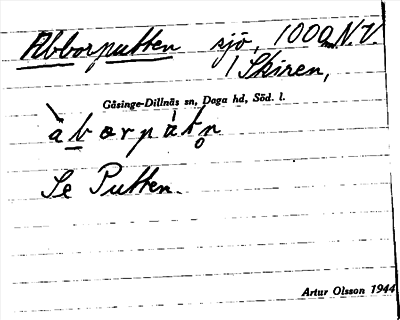 Abborputten sjö, 1000 m N.V.
/ Skiren,
Gåsinge-Dillnäs sn, Daga hd, Söd. l.
àbɷrpàtn̥
Se Putten.
Artur Olsson 1944